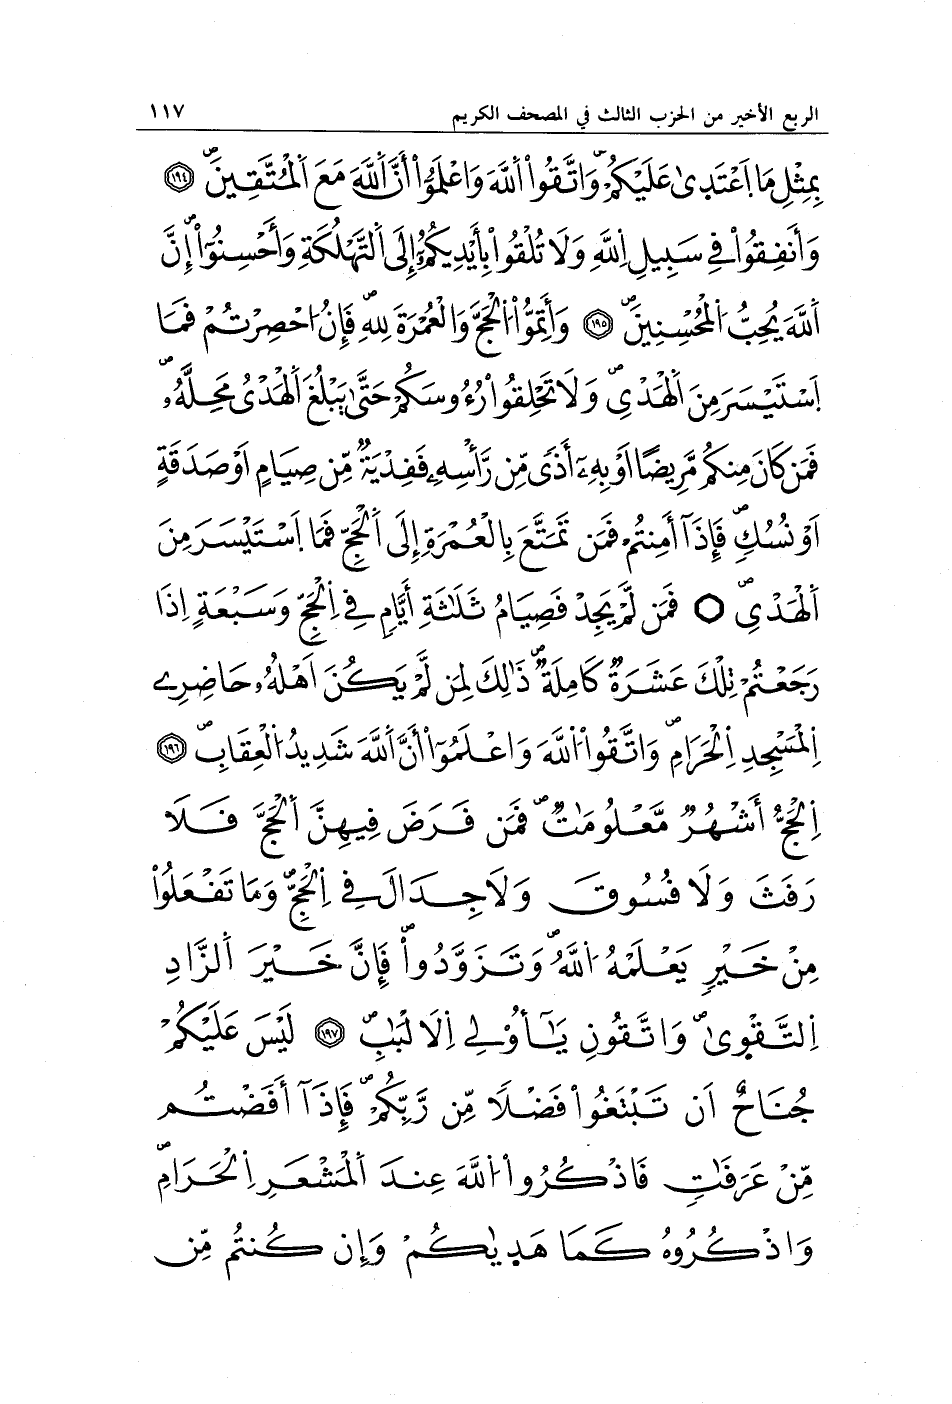 الربع الأخير من الحزب الثالث في المصحف الكريم ١١٧
بِمِثْلِ مَا اَعْتَدِىٰ عَلَيْكُمْ وَاتَّقُوا۟ اُللَّهَ وَاعْلَمُوٓا۟ أَنَّ اَللَّهَ مَعَ اَلْمُتَّقِينَ ١٩٤
وَأَنفِقُوا۟ فِي سَبِيلِ اِللَّهِ وَلَا تُلْقُوا۟ بِأَيْدِيكُمُۥٓ إِلَى اَلتَّهْلُكَةِ وَأَحْسِنُوٓا۟ إِنَّ
اَللَّهَ يُحِبُّ اُلْمُحْسِنِينَ ١٩٥ وَأَتِمُّوا۟ اُلْحَجَّ وَالْعُمْرَةَ لِلهِ فَإِنُ احْصِرْتُمْ فَمَا
اَسْتَيْسَرَ مِنَ اَلْهَدْيِ وَلَا تَحْلِقُوا۟ رُءُوسَكُمْ حَتَّىٰ يَبْلُغَ اَلْهَدْىُ مَحِلَّهُۥ
فَمَن كَانَ مِنكُم مَّرِيضًا اَوْ بِهِۦٓ أَذًى مِّن رَّأْسِهِۦ فَفِدْيَةٌ مِّن صِيَامٍ اَوْ صَدَقَةٍ
اَوْ نُسُكٍ فَإِذَآ أَمِنتُمْ فَمَن تَمَتَّعَ بِالْعُمْرَةِ إِلَى اَلْحَجِّ فَمَا اَسْتَيْسَرَ مِنَ
اَلْهَدْيِ ۝ فَمَن لَّمْ يَجِدْ فَصِيَامُ ثَلَٰثَةِ أَيَّامٍ فِي اِلْحَجِّ وَسَبْعَةٍ اِذَا
رَجَعْتُمْ تِلْكَ عَشَرَةٌ كَامِلَةٌ ذَٰلِكَ لِمَن لَّمْ يَكُنَ اَهْلُهُۥ حَاضِرِے
اِلْمَسْجِدِ اِلْحَرَامِ وَاتَّقُوا۟ اُللَّهَ وَاعْلَمُوٓا۟ أَنَّ اَللَّهَ شَدِيدُ اُلْعِقَابِ ١٩٦
اِلْحَجُّ أَشْهُرٌ مَّعْلُومَٰتٌ فَمَن فَرَضَ فِيهِنَّ اَلْحَجَّ فَلَا
رَفَثَ وَلَا فُسُوقَ وَلَا جِدَالَ فِي اِلْحَجِّ وَمَا تَفْعَلُوا۟
مِنْ خَيْرٍ يَعْلَمْهُ اُللَّهُ وَتَزَوَّدُوا۟ فَإِنَّ خَيْرَ اَلزَّادِ
اِلتَّقْوِىٰ وَاتَّقُونِ يَٰٓأُوْلِي اِلَالْبَٰبِ ١٩٧ لَيْسَ عَلَيْكُمْ
جُنَاحٌ اَن تَبْتَغُوا۟ فَضْلًا مِّن رَّبِّكُمْ فَإِذَآ أَفَضْتُم
مِّنْ عَرَفَٰتٍ فَاذْكُرُوا۟ اُللَّهَ عِندَ اَلْمَشْعَرِ اِلْحَرَامِ
وَاذْكُرُوهُ كَمَا هَدِيٰكُمْ وَإِن كُنتُم مِّن